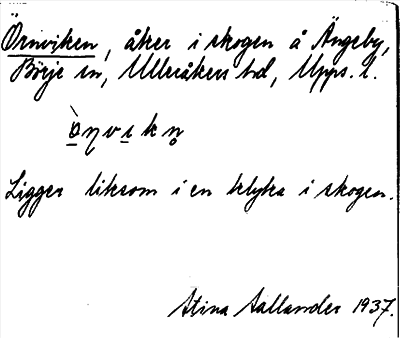 Örnviken, åker i skogen å Ängeby,
Börje sn, Ulleråkers hd, Upps. l.
ò̱ŋvi̱kn̥
Ligger liksom i en klyka i skogen.
Stina Sallander 1937.